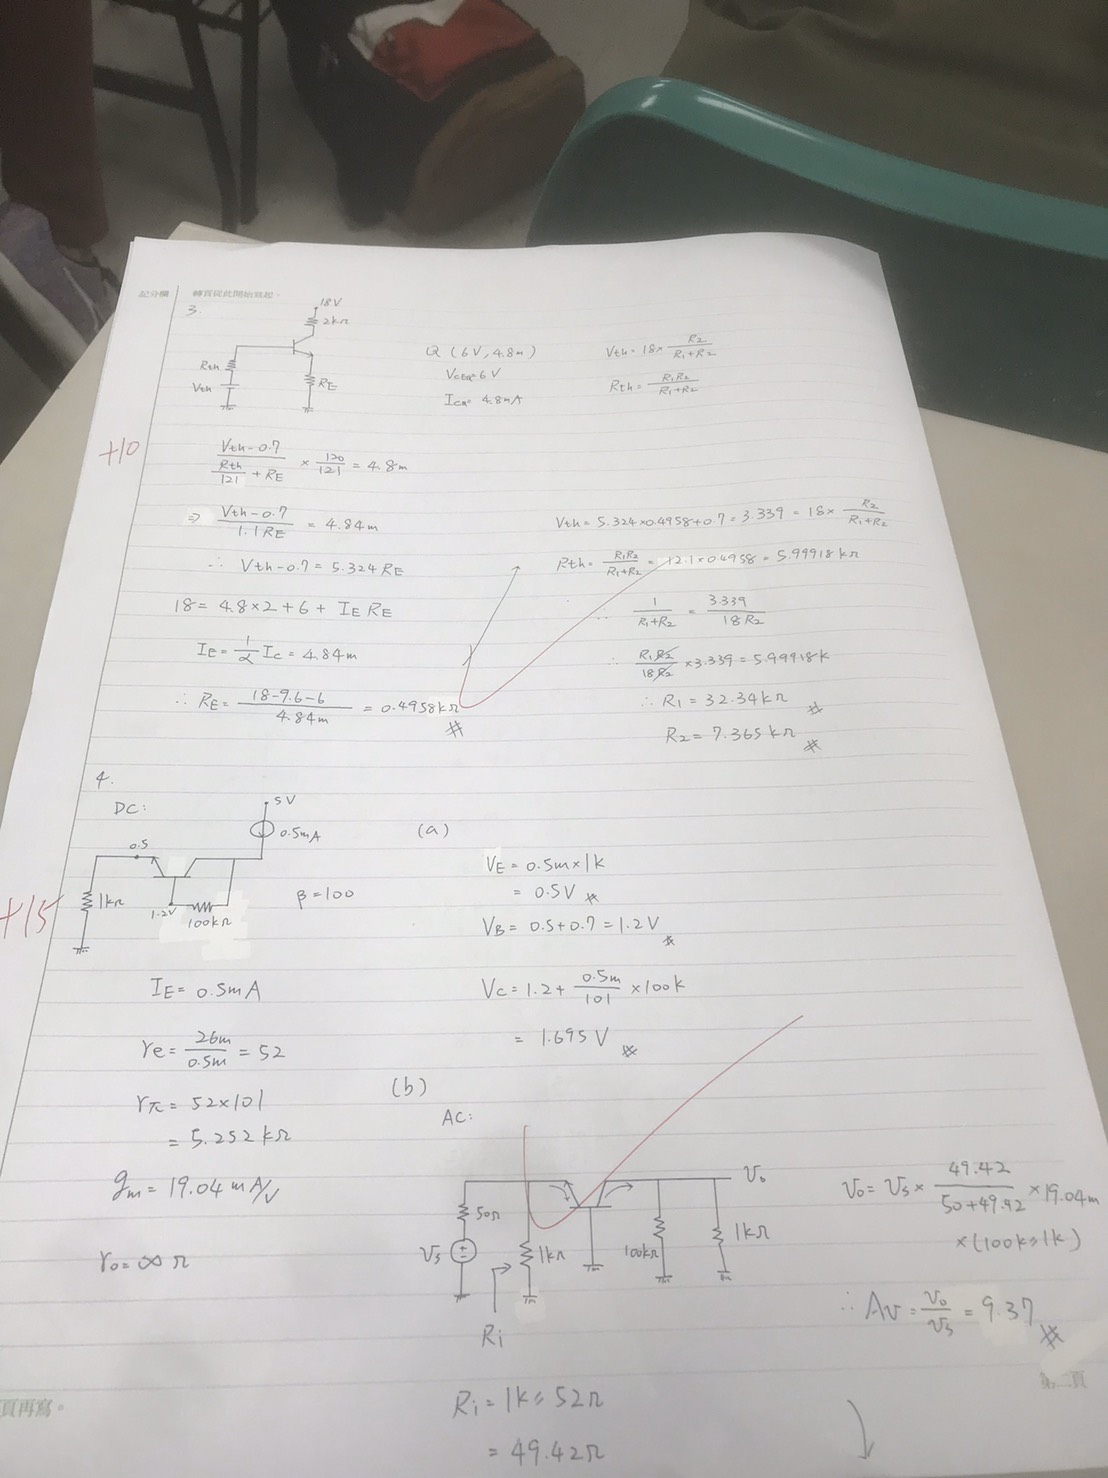 記分欄 轉頁從此開始寫起。
3.
18V
2kΩ
Rth
Vth
RE
Q (6V, 4.8m)
VCEQ=6V
ICQ= 4.8mA
Vth= 18× R2/(R1+R2)
Rth= R1R2/(R1+R2)
+10
(Vth-0.7)/(Rth/121 + RE) × 120/121 = 4.8m
⇒ (Vth-0.7)/(1.1RE) = 4.84m
∴ Vth-0.7 = 5.324RE
18 = 4.8×2+6+ IERE
IE= 1/α IC = 4.84m
∴ RE= (18-9.6-6)/4.84m = 0.4958kΩ #
Vth= 5.324×0.4958+0.7 = 3.339 = 18× R2/(R1+R2)
Rth= R1R2/(R1+R2) = 12.1×0.4958 = 5.99918kΩ
∴ 1/(R1+R2) = 3.339/18R2
∴ R1R2/18R2 ×3.339 = 5.99918k
∴ R1 = 32.34kΩ #
R2 = 7.365kΩ #
4.
DC:
5V
0.5mA
0.5
1kΩ
1.2V
100kΩ
β=100
+15
IE= 0.5mA
re= 26m/0.5m = 52
rπ= 52×101
= 5.252kΩ
gm= 19.04mA/V
ro= ∞Ω
(a)
VE = 0.5m×1k
= 0.5V #
VB= 0.5+0.7 = 1.2V #
VC= 1.2+ 0.5m/101 ×100k
= 1.695V #
(b)
AC:
50Ω
Vs
1kΩ
100kΩ
1kΩ
Vo
Ri
Vo= Vs× 49.42/(50+49.42) ×19.04m
×(100k∥1k)
∴ Av= Vo/Vs = 9.37 #
Ri= 1k∥52Ω
= 49.42Ω
頁再寫。
第二頁